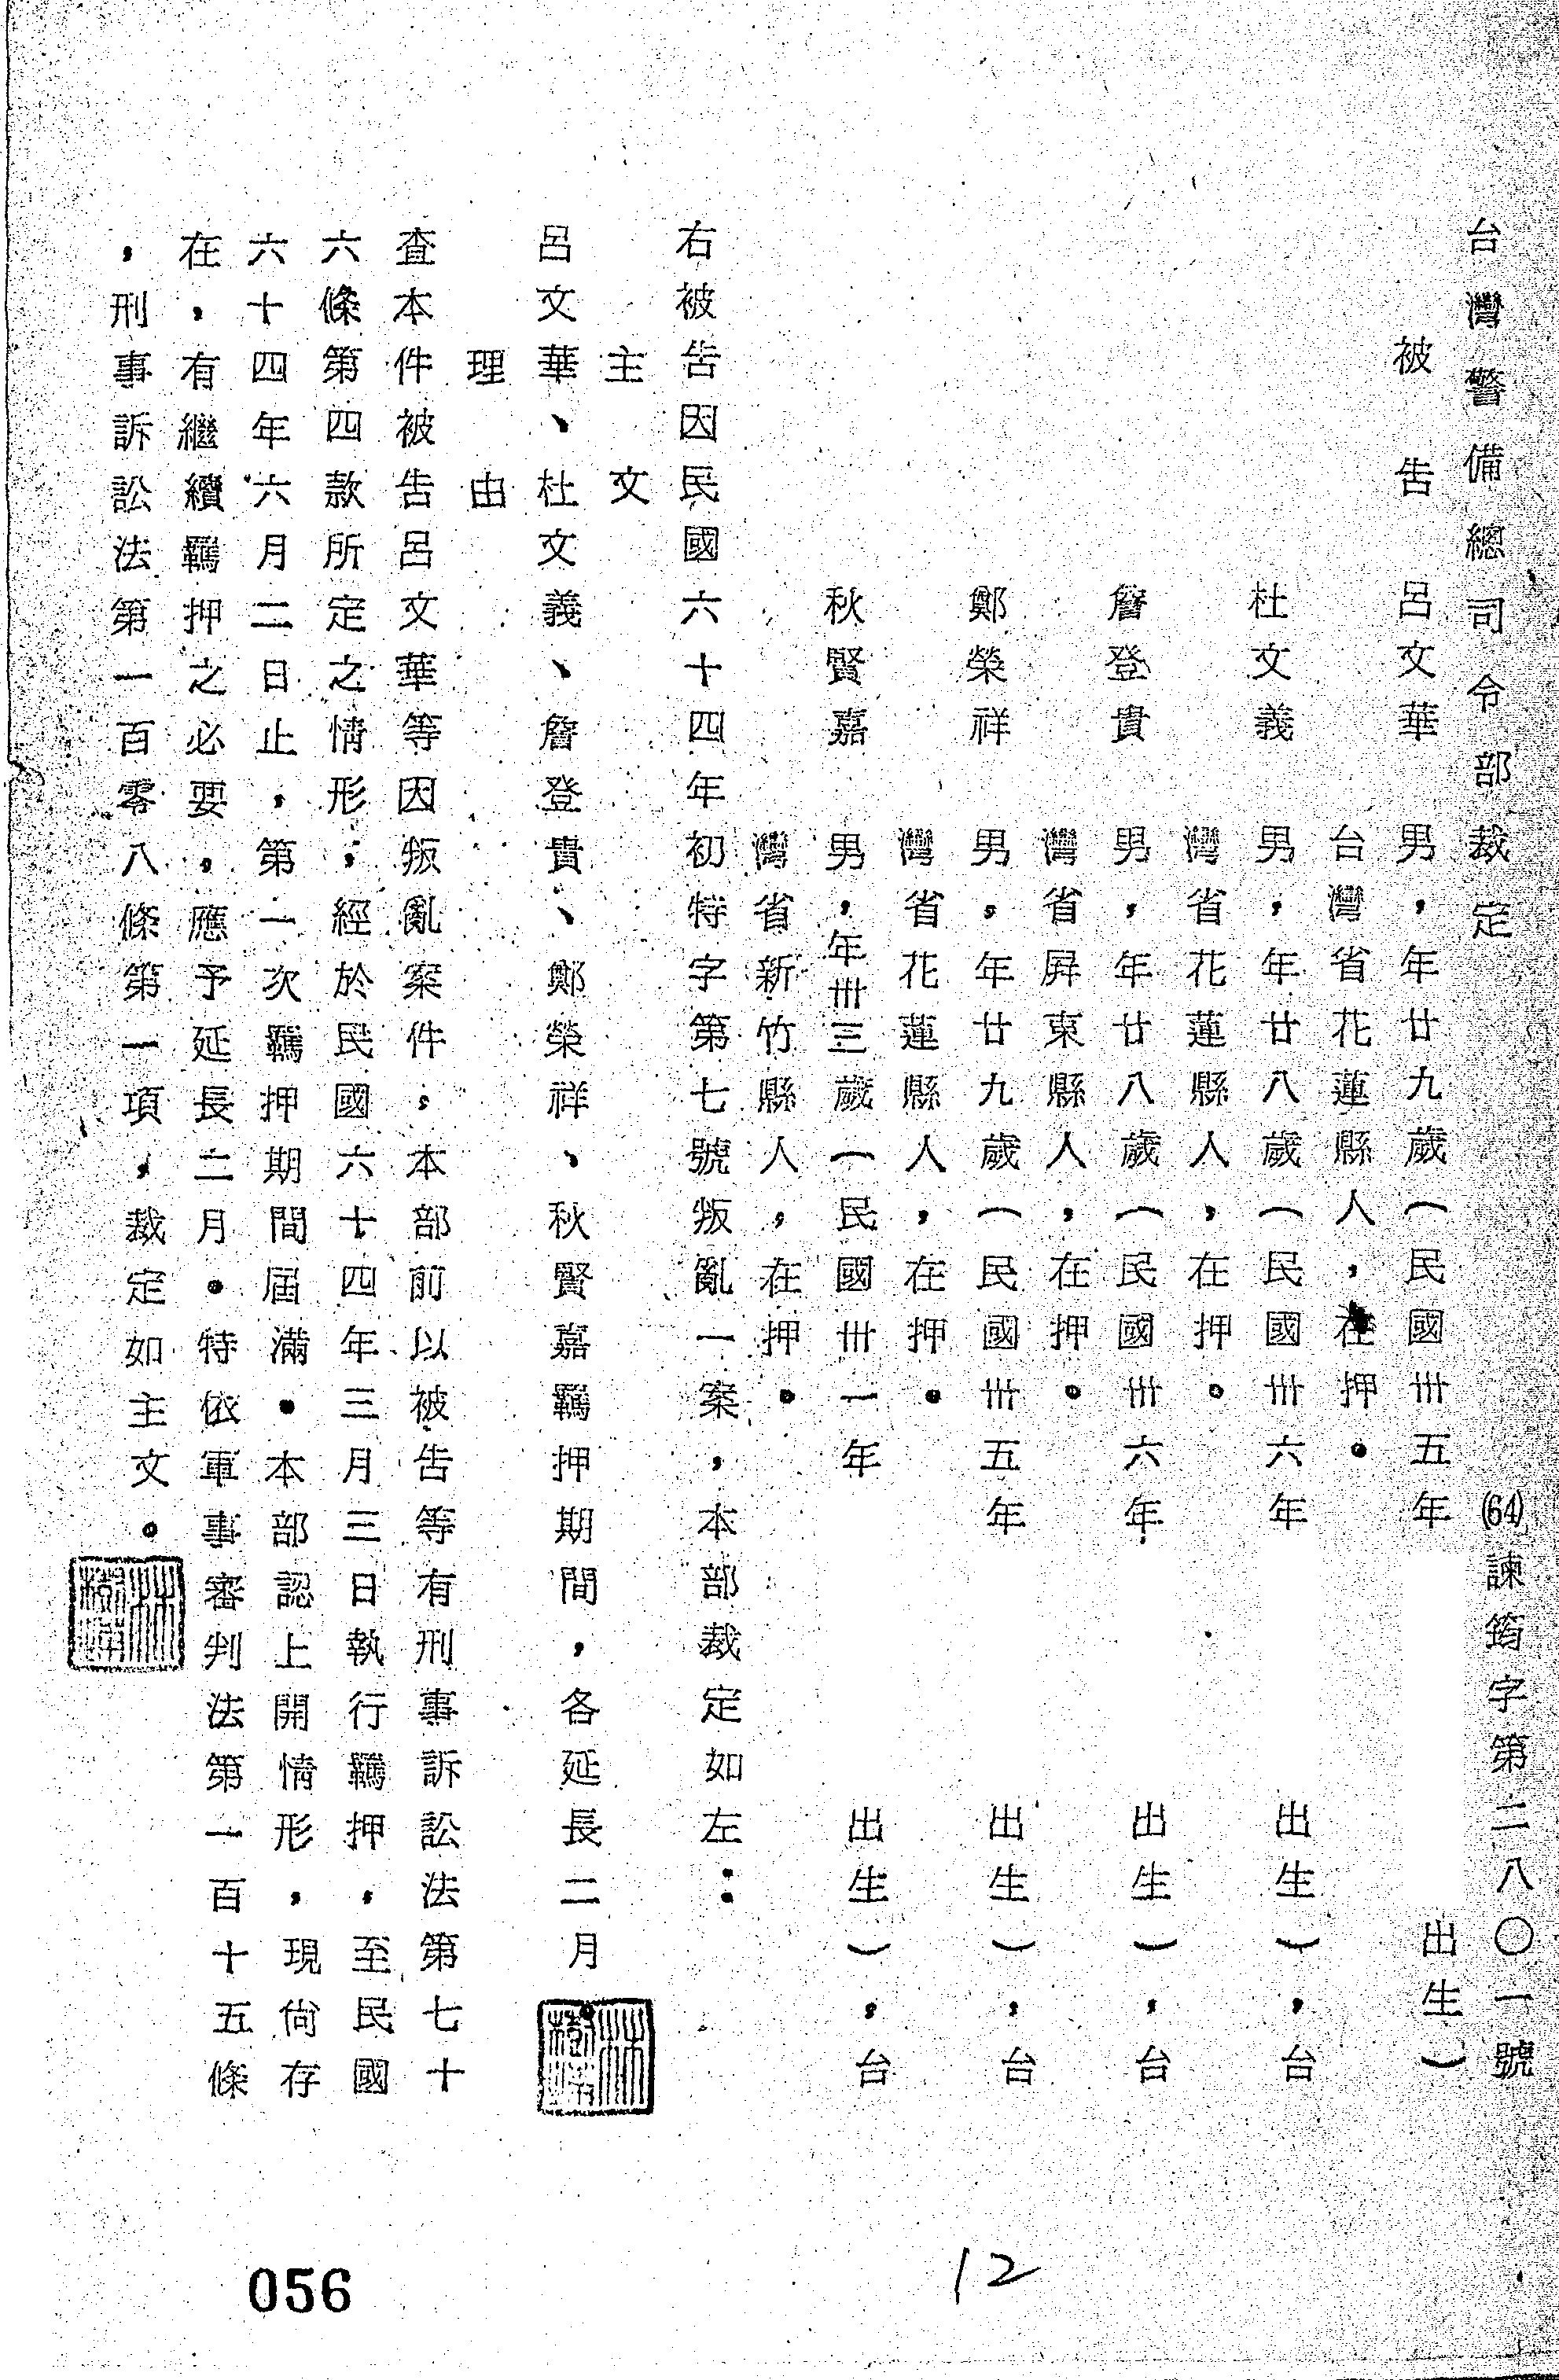 台灣警備總司令部裁定 (64)諫筠字第二八〇一號
被告 呂文華 男，年廿九歲（民國卅五年 出生）
台灣省花蓮縣人，在押。
杜文義 男，年廿八歲（民國卅六年 出生），台
灣省花蓮縣人，在押。
詹登貴 男，年廿八歲（民國卅六年 出生），台
灣省屏東縣人，在押。
鄭榮祥 男，年廿九歲（民國卅五年 出生），台
灣省花蓮縣人，在押。
秋賢嘉 男，年卅三歲（民國卅一年 出生），台
灣省新竹縣人，在押。
右被告因民國六十四年初特字第七號叛亂一案，本部裁定如左：
主文
呂文華、杜文義、詹登貴、鄭榮祥、秋賢嘉羈押期間，各延長二月。
理由
查本件被告呂文華等因叛亂案件，本部前以被告等有刑事訴訟法第七十
六條第四款所定之情形，經於民國六十四年三月三日執行羈押，至民國
六十四年六月二日止，第一次羈押期間屆滿。本部認上開情形，現尚存
在，有繼續羈押之必要，應予延長二月。特依軍事審判法第一百十五條
，刑事訴訟法第一百零八條第一項，裁定如主文。
056
12